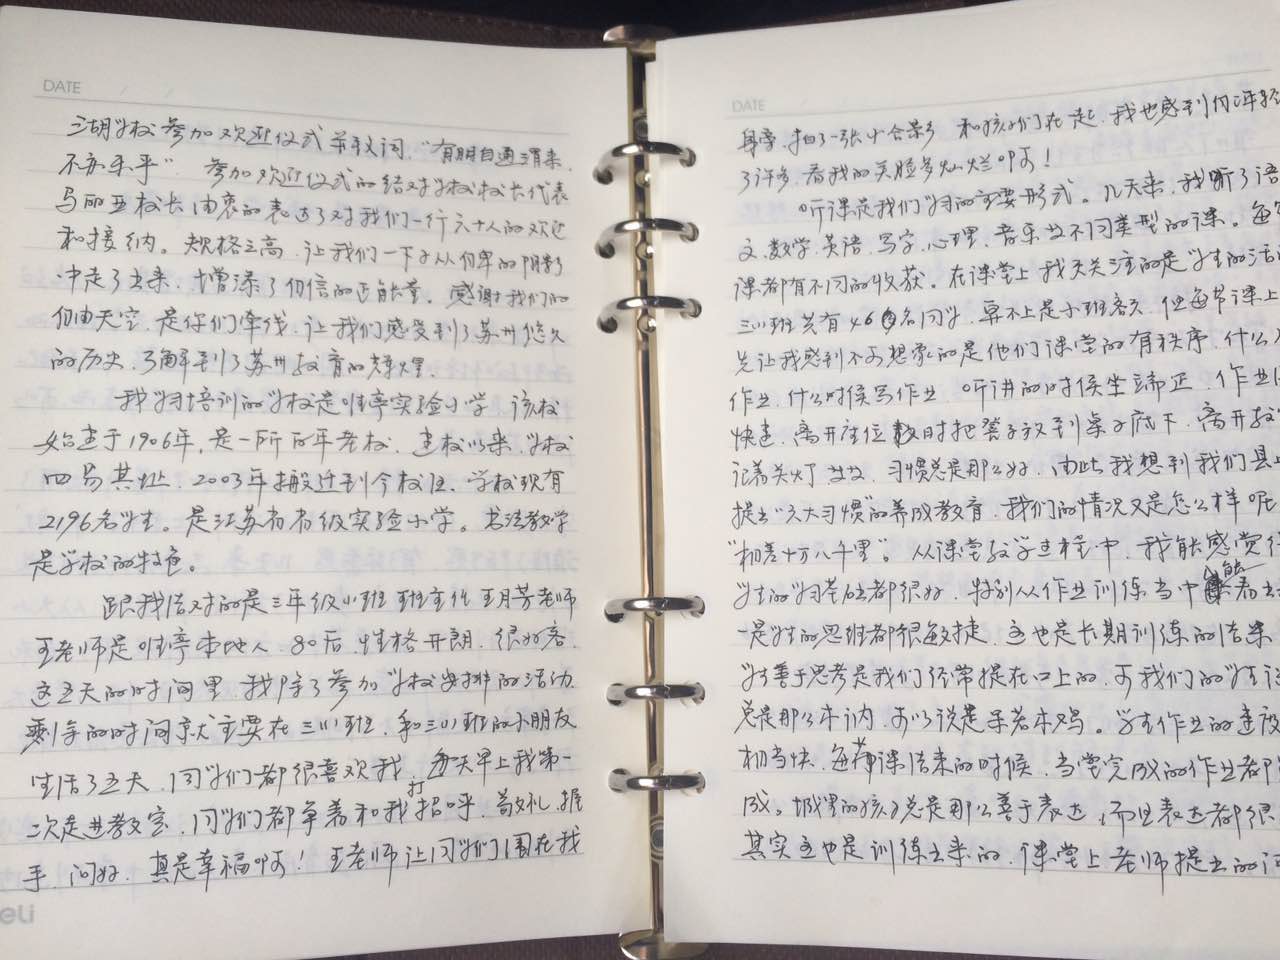 DATE
三湖学校参加欢迎仪式并致词，“有朋自通渭来，
不亦乐乎”参加欢迎仪式的结对学校校长代表
马丽亚校长由衷的表达了对我们一行六十人的欢迎
和接纳。规格之高，让我们一下子从自卑的阴影
中走了出来，增添了自信的正能量。感谢我们的
自由天空，是你们牵线，让我们感受到了苏州悠久
的历史，了解到了苏州教育的辉煌。
我学习培训的学校是唯亭实验小学，该校
始建于1906年，是一所百年老校，建校以来，学校
四易其址，2003年搬迁到今校区，学校现有
2196名学生。是江苏省省级实验小学。书法教学
是学校的特色。
跟我结对的是三年级(1)班班主任王月芳老师
王老师是唯亭本地人，80后，性格开朗，很好客，
这五天的时间里，我除了参加学校安排的活动，
剩余的时间就主要在三(1)班，和三(1)班的小朋友
生活了五天，同学们都很喜欢我，每天早上我第一
次走进教室，同学们都争着和我打招呼，敬礼，握
手，问好，真是幸福啊！王老师让同学们围在我
eli
DATE
身旁，拍了一张小合影，和孩子们在一起，我也感到自己年轻
了许多，看我的笑脸多灿烂啊！
听课是我们学习的主要形式。几天来，我听了语
文、数学、英语、写字、心理、音乐等不同类型的课。每
课都有不同的收获。在课堂上我只关注的是学生的活
三(1)班共有46名同学，算不上是小班容大，但每节课上
先让我感到不可想象的是他们课堂的有秩序，什么
作业，什么时候写作业，听讲的时候坐端正，作业
快速，离开座位时把凳子放到桌子底下，离开教
记着关灯等等，习惯总是那么好，由此我想到我们县上
提出“六大习惯”的养成教育，我们的情况又是怎么样呢
“相差十万八千里”。从课堂教学过程中，我能感觉
学生的学习基础都很好，特别从作业训练当中能看出
一是学生的思维都很敏捷，这也是长期训练的结果，
学生善于思考是我们经常提在口上的，可我们的学生
总是那么木讷，可以说是呆若木鸡。学生作业的速度
相当快，每节课结束的时候，当堂完成的作业都
成。城里的孩子总是那么善于表达，而且表达都很
其实这也是训练出来的，课堂上老师提出的问